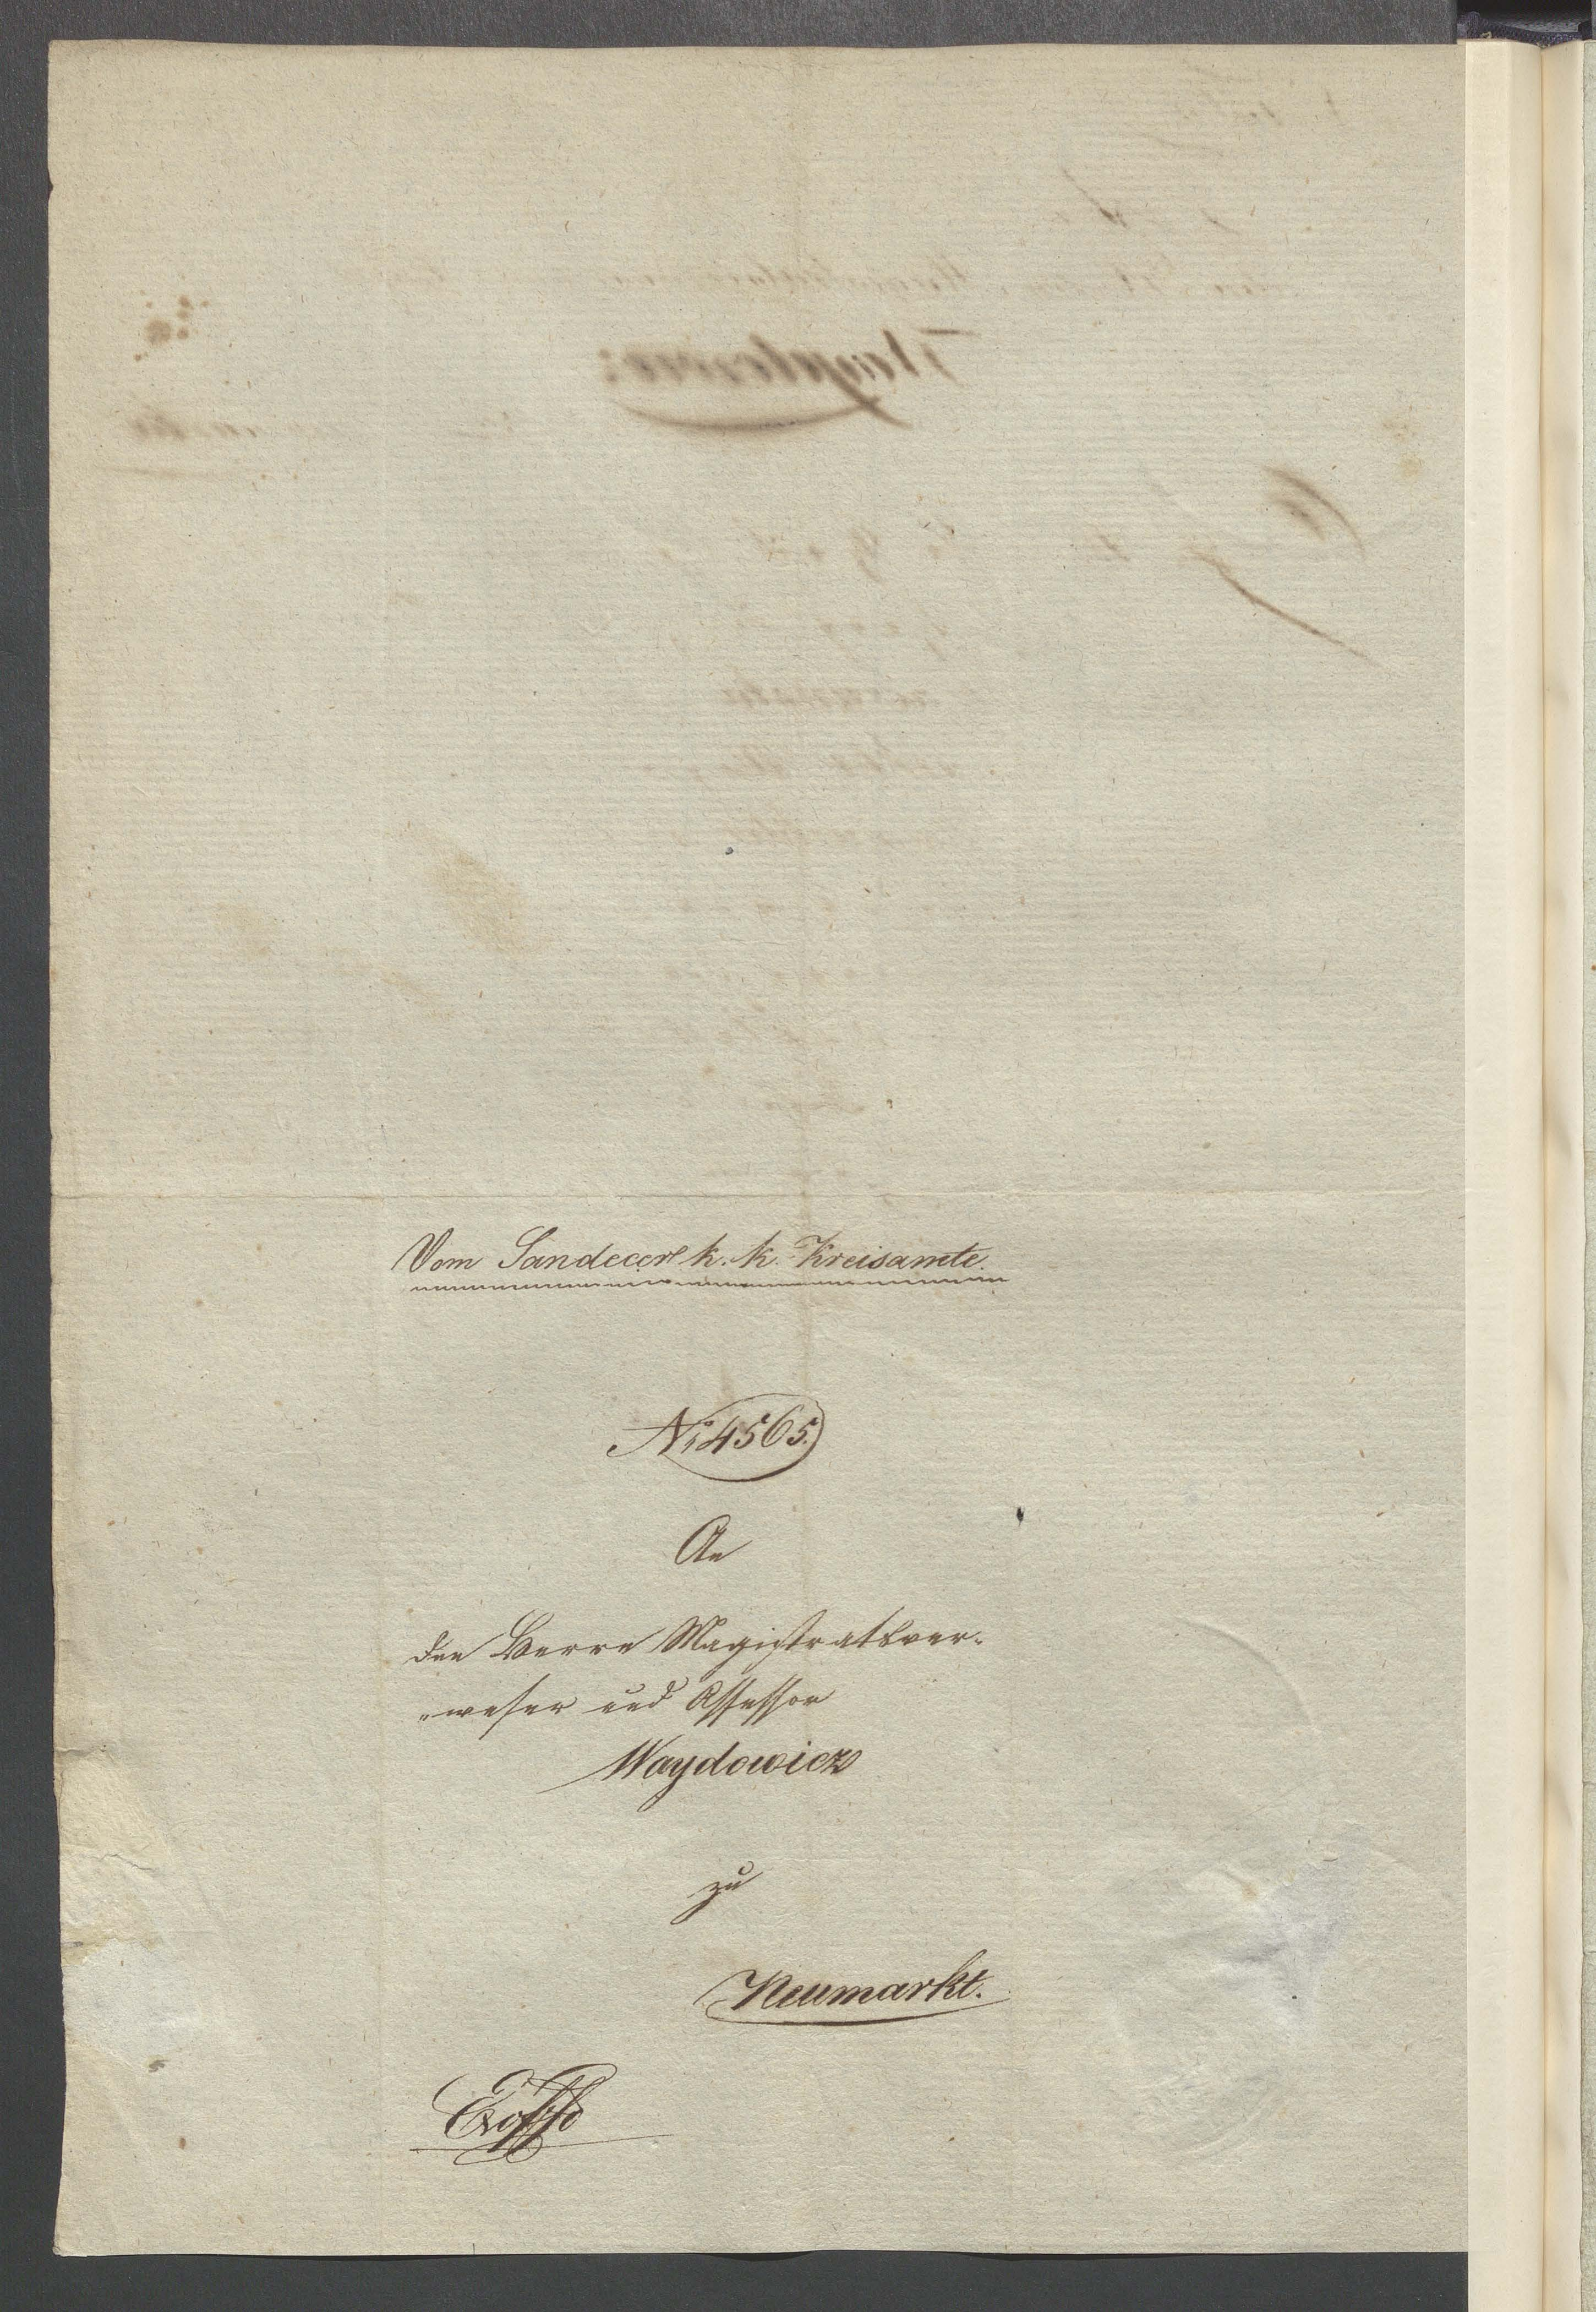 Vom Sandecer k. k. Kreisamte.
No 4565.
An
den Herrn Magistratsver-
-weser und Assessor
Waydowicz
zu
Neumarkt.